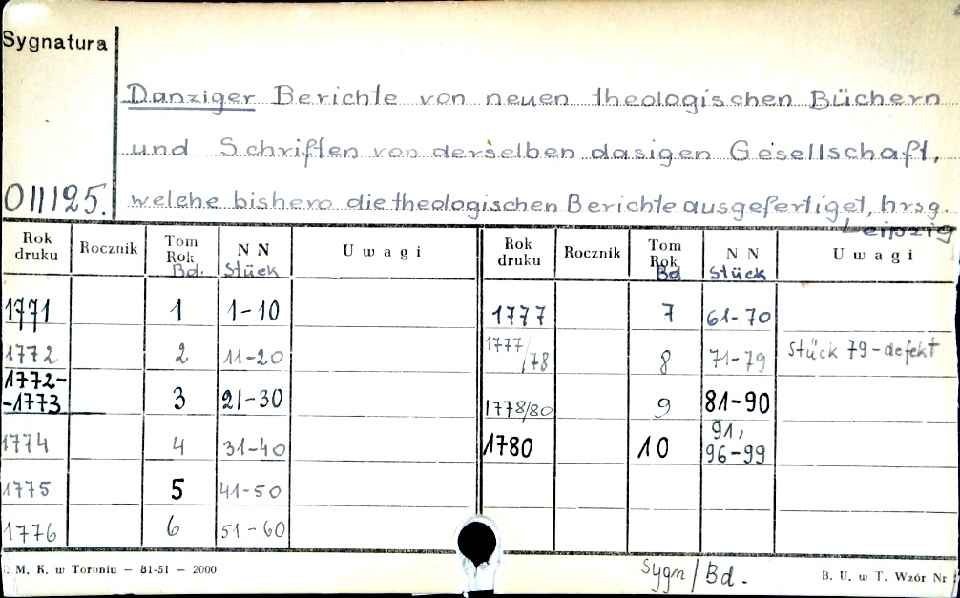 Sygnatura
Danziger Berichte von neuen theologischen Büchern
und Schriften von derselben dasigen Gesellschaft,
011125. welche bishero die theologischen Berichte ausgefertiget, hrsg.
Leipzig
Rok druku Rocznik Tom Rok Bd. NN Stück Uwagi Rok druku Rocznik Tom Rok Bd NN Stück Uwagi
1771 1 1-10 1777 7 61-70
1772 2 11-20 1777/78 8 71-79 Stück 79-defekt
1772-
-1773 3 21-30 1778/80 9 81-90
1774 4 31-40 1780 10 91,
96-99
1775 5 41-50
1776 6 51-60
M. K. w Toruniu — 81-51 — 2000 Sygn/Bd. B. U. w T. Wzór Nr